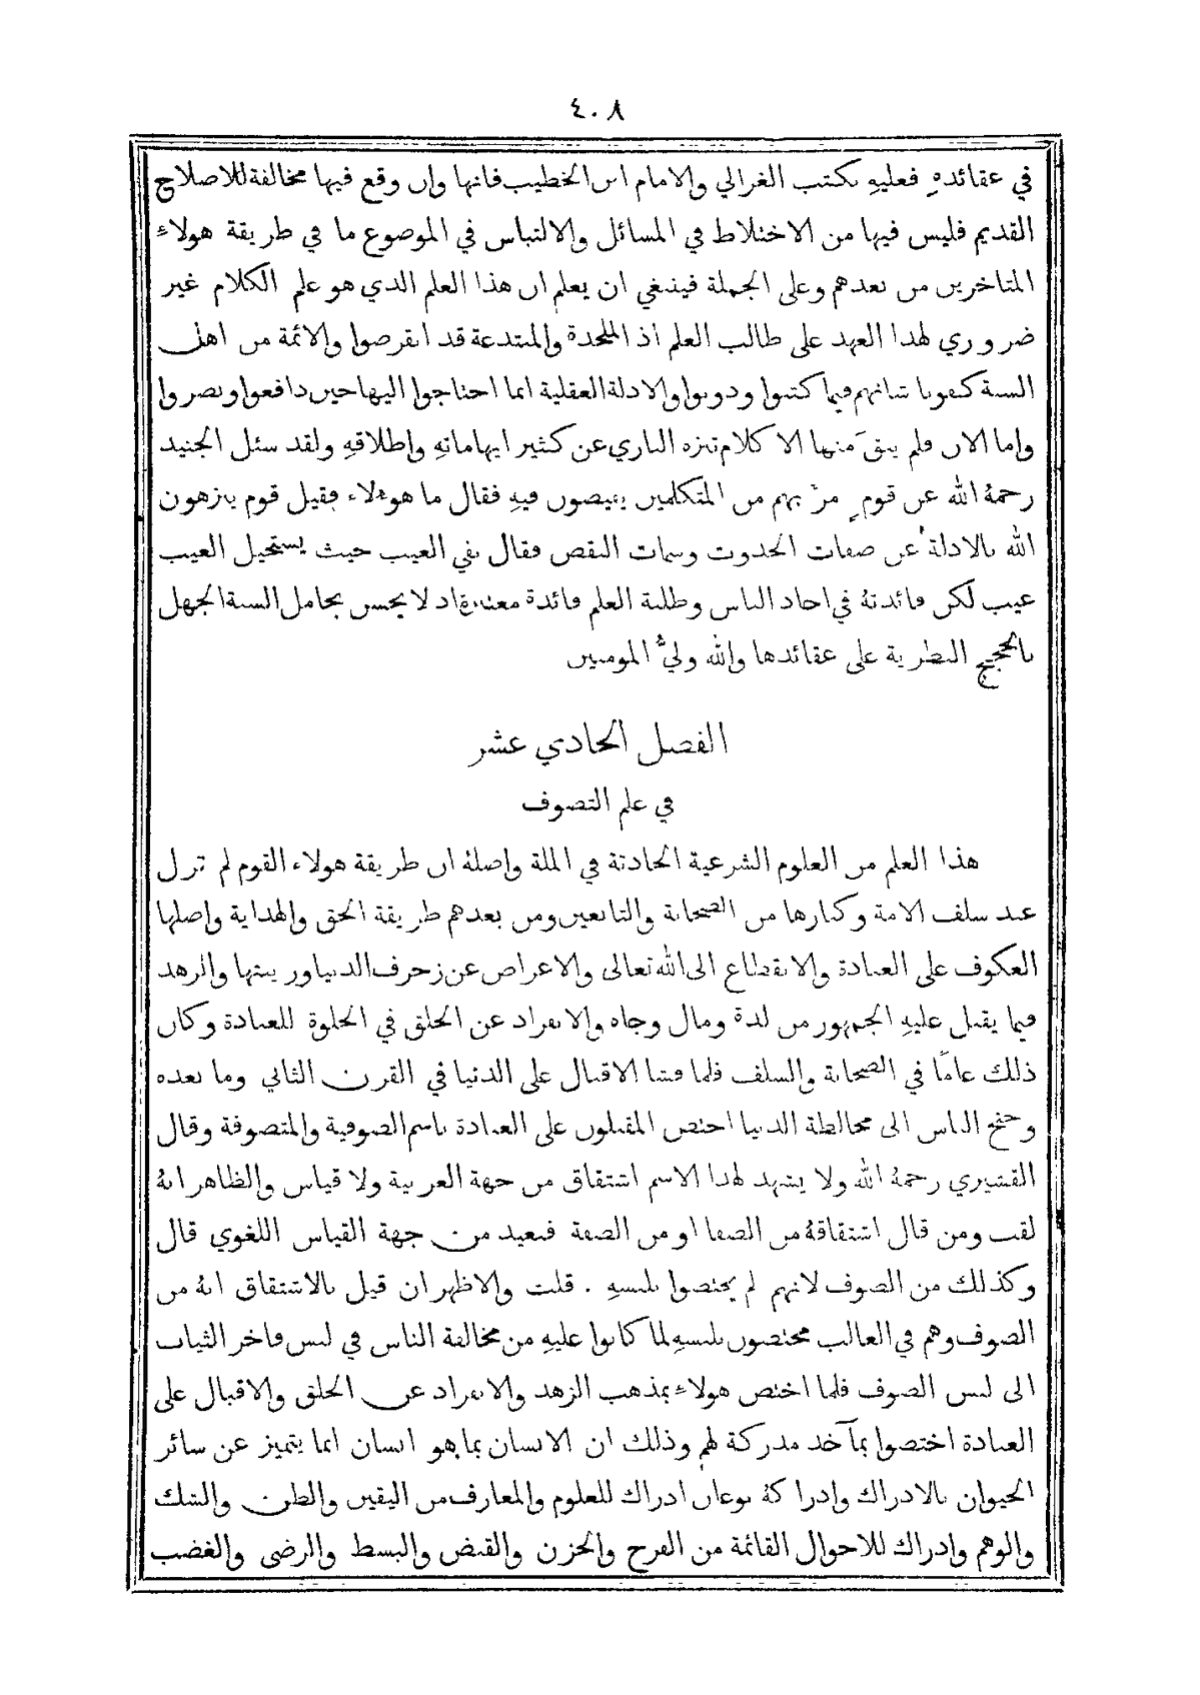 ٤٠٨
في عقائدهِ فعليهِ بكتب الغزالي والامام ابن الخطيب فانها وان وقع فيها مخالفة للاصلاح
القديم فليس فيها من الاختلاط في المسائل والالتباس في الموضوع ما في طريقة هولاء
المتاخرين من بعدهم وعلى الجملة فينبغي ان يعلم ان هذا العلم الذي هو علم الكلام غير
ضروري لهذا العهد على طالب العلم اذ الملحدة والمبتدعة قد انقرضوا والائمة من اهل
السنة كفونا شانهم فيما كتبوا ودونوا والادلة العقلية انما احتاجوا اليها حين دافعوا ونصروا
واما الان فلم يبقَ منها الا كلام تنزه الباري عن كثير ايهاماتهِ واطلاقهِ ولقد سئل الجنيد
رحمهُ الله عن قومٍ مرَّ بهم من المتكلمين يفيضون فيهِ فقال ما هولاء فقيل قوم ينزهون
الله بالادلة عن صفات الحدوث وسمات النقص فقال نفي العيب حيث يستحيل العيب
عيب لكن فائدتهُ في احاد الناس وطلبة العلم فائدة معتبرة اذ لا يحسن بحامل السنة الجهل
بالحجج النظرية على عقائدها والله وليُّ المومنين
الفصل الحادي عشر
في علم التصوف
هذا العلم من العلوم الشرعية الحادثة في الملة واصلهُ ان طريقة هولاء القوم لم تزل
عند سلف الامة وكبارها من الصحابة والتابعين ومن بعدهم طريقة الحق والهداية واصلها
العكوف على العبادة والانقطاع الى الله تعالى والاعراض عن زخرف الدنيا وزينتها والزهد
فيما يقبل عليهِ الجمهور من لذة ومال وجاه والانفراد عن الخلق في الخلوة للعبادة وكان
ذلك عامًّا في الصحابة والسلف فلما فشا الاقبال على الدنيا في القرن الثاني وما بعده
وجنح الناس الى مخالطة الدنيا اختص المقبلون على العبادة باسم الصوفية والمتصوفة وقال
القشيري رحمهُ الله ولا يشهد لهذا الاسم اشتقاق من جهة العربية ولا قياس والظاهر انهُ
لقب ومن قال اشتقاقهُ من الصفا او من الصفة فبعيد من جهة القياس اللغوي قال
وكذلك من الصوف لانهم لم يختصوا بلبسهِ . قلت والاظهر ان قيل بالاشتقاق انهُ من
الصوف وهم في الغالب مختصون بلبسهِ لما كانوا عليهِ من مخالفة الناس في لبس فاخر الثياب
الى لبس الصوف فلما اختص هولاء بمذهب الزهد والانفراد عن الخلق والاقبال على
العبادة اختصوا بمآخذ مدركة لهم وذلك ان الانسان بما هو انسان انما يتميز عن سائر
الحيوان بالادراك وادراكهُ نوعان ادراك للعلوم والمعارف من اليقين والظن والشك
والوهم وادراك للاحوال القائمة من الفرح والحزن والقبض والبسط والرضى والغضب